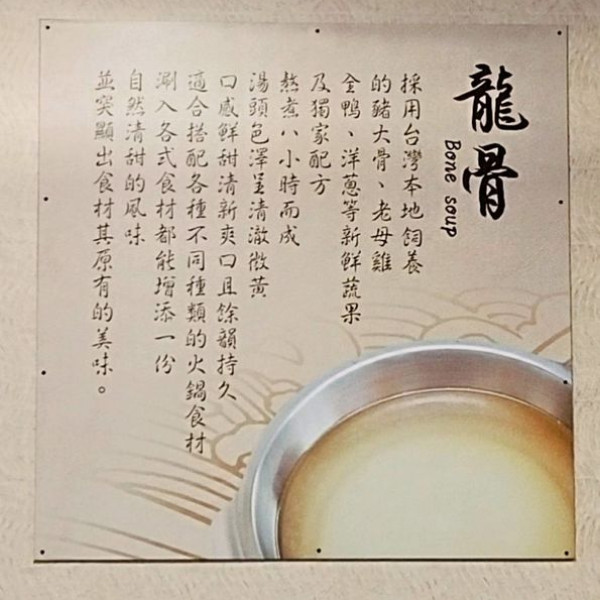 龍骨
Bone soup
採用台灣本地飼養
的豬大骨、老母雞
全鴨、洋蔥等新鮮蔬果
及獨家配方
熬煮八小時而成
湯頭色澤呈清澈微黃
口感鮮甜清新爽口且餘韻持久
適合搭配各種不同種類的火鍋食材
涮入各式食材都能增添一份
自然清甜的風味
並突顯出食材其原有的美味。